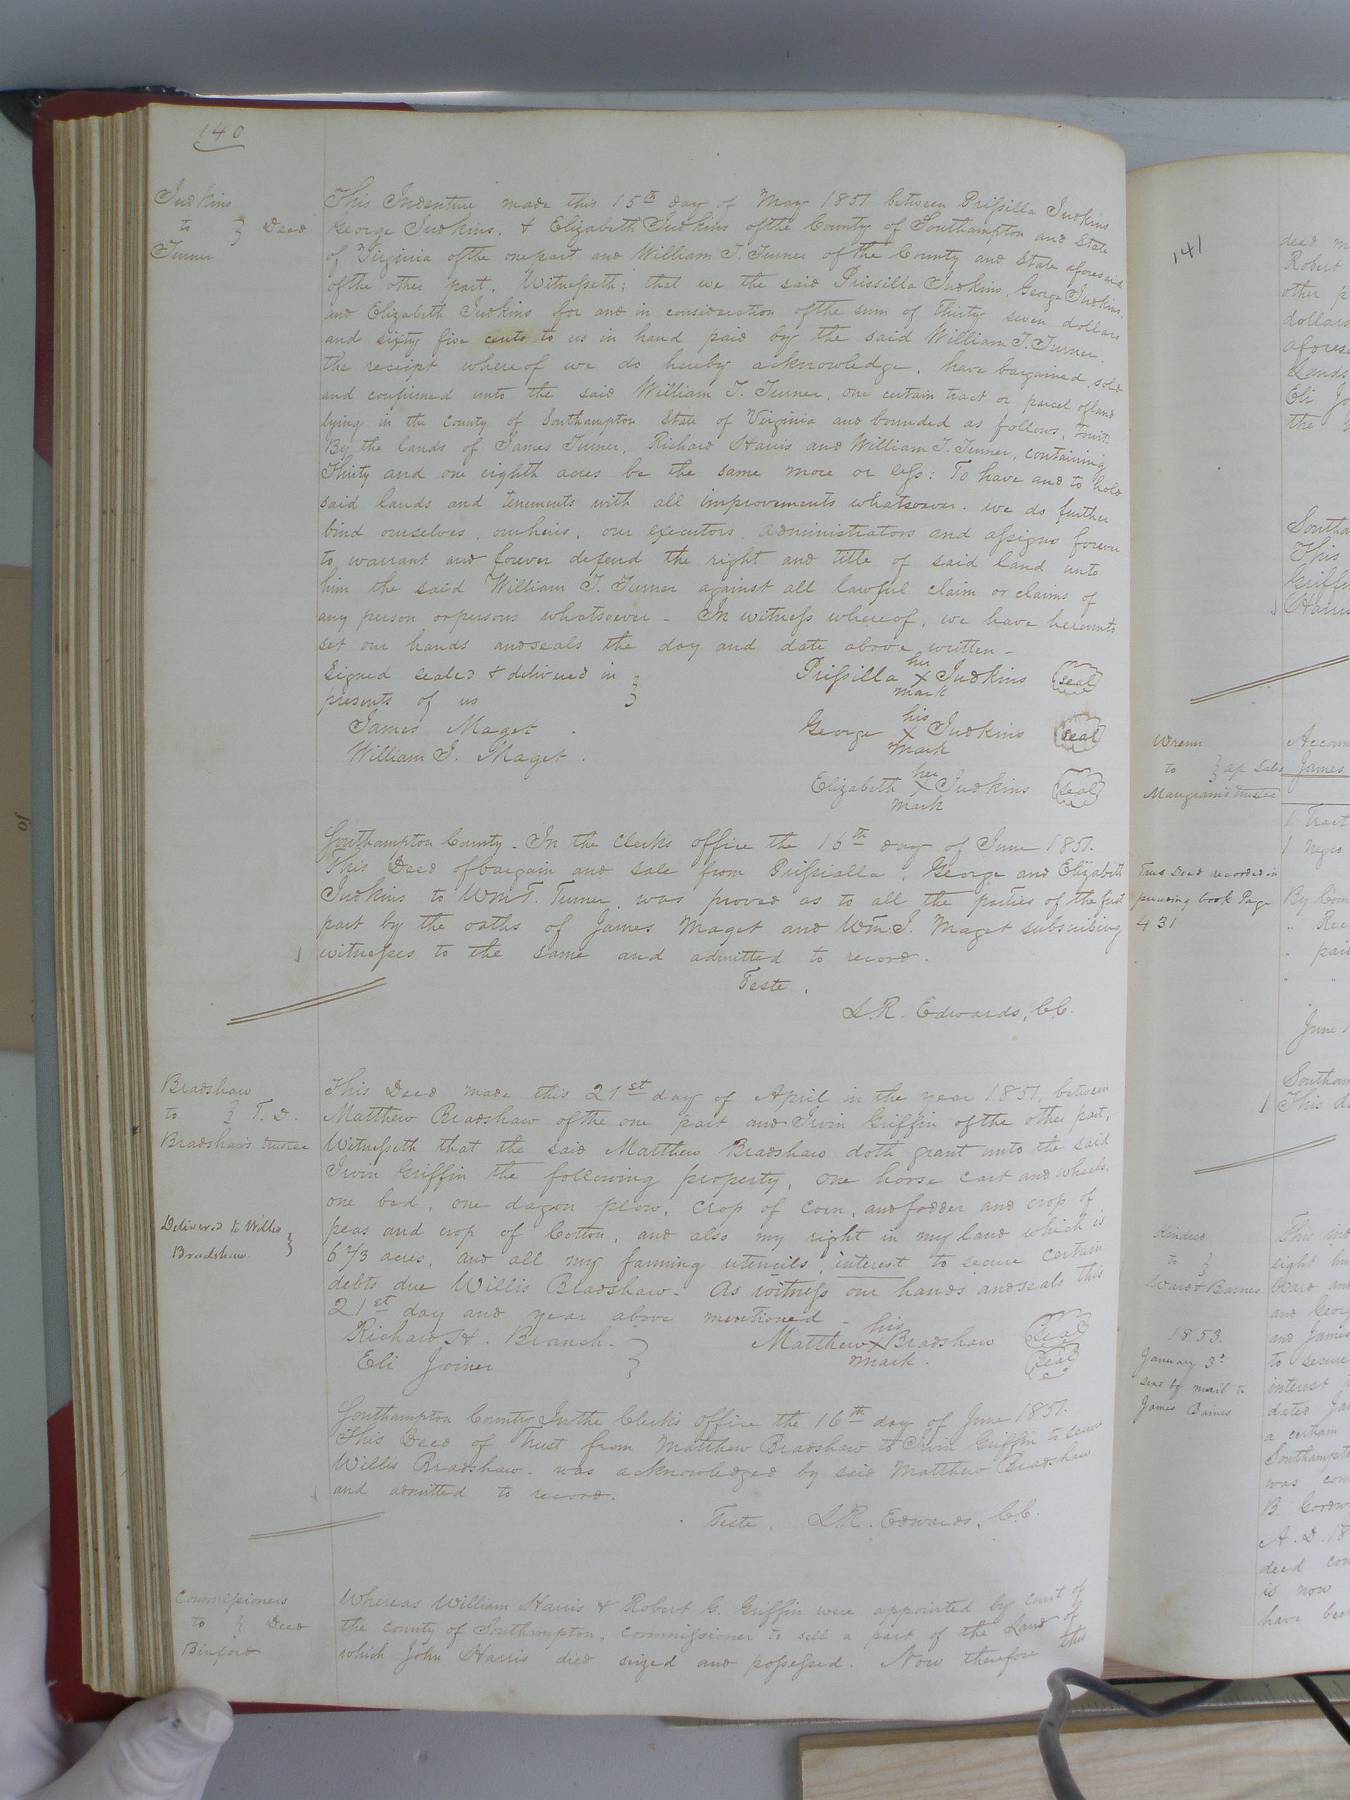 140
Judkins
to } Deed
Turner
This Indenture made this 15th day of May 1851 between Prissilla Judkins
George Judkins, & Elizabeth Judkins of the County of Southampton and State
of Virginia of the one part and William T. Turner of the County and State aforesaid
of the other part. Witnesseth; that we the said Prissilla Judkins, George Judkins,
and Elizabeth Judkins for and in consideration of the sum of thirty seven dollars
and sixty five cents to us in hand paid by the said William T. Turner,
the receipt whereof we do hereby acknowledge, have bargained, sold
and confirmed unto the said William T. Turner, one certain tract or parcel of land
lying in the County of Southampton State of Virginia and bounded as follows, Towit:
By the lands of James Turner, Richard Harris and William T. Turner, containing
Thirty and one eighth acres be the same more or less: To have and to hold
said lands and tenements with all improvements whatsoever. we do further
bind ourselves, our heirs, our executors, administrators and assigns forever
to warrant and forever defend the right and title of said land unto
him the said William T. Turner against all lawful claim or claims of
any person or persons whatsoever - In witness whereof, we have hereunto
set our hands and seals the day and date above written -
Signed sealed & delivered in }
presents of us
James Maget.
William J. Maget.
Prissilla her X mark Judkins seal
George his X mark Judkins seal
Elizabeth her X mark Judkins seal
Southampton County - In the Clerks office the 16th day of June 1851.
This Deed of bargain and sale from Prissialla, George and Elizabeth
Judkins to Wm. T. Turner, was proved as to all the parties of the first
part by the oaths of James Maget and Wm. J. Maget subscribing
witnesses to the same and admitted to record.
Teste,
L.R. Edwards, C.C.
Bradshaw
to } T. D.
Bradshaw's trustee
Delivered to Willis }
Bradshaw
This Deed made this 21st day of April in the year 1851, between
Matthew Bradshaw of the one part and Irvin Griffin of the other part,
Witnesseth that the said Matthew Bradshaw doth grant unto the said
Irvin Griffin the following property, one horse cart and wheels,
one bed, one dagon plow, crop of corn, and fodder and crop of
peas and crop of Cotton, and also my right in my land which is
6 2/3 acres, and all my farming utencils, interest to secure certain
debts due Willis Bradshaw - As witness our hands and seals this
21st day and year above mentioned -
Richard H. Branch.
Eli Joiner
Matthew his X mark. Bradshaw Seal
Seal
Southampton County In the Clerks office the 16th day of June 1851.
This Deed of Trust from Matthew Bradshaw to Irvin Griffin to secure
Willis Bradshaw - was acknowledged by said Matthew Bradshaw
and admitted to record.
Teste, L.R. Edwards, C.C.
Commissioners
to } Deed
Binford
Whereas William Harris & Robert G. Griffin were appointed by court of
the county of Southampton, commissioner to sell a part of the Land of
which John Harris died seized and possessed. Now therefore this
141
deed m
Robert
other p
dollars
aforesa
Lands
Eli Jo
the
Southa
This
Griffin
Harris
Wrenn
to } ap Sales
Mangram's trustee
Trus Deed recorded in
preceding book Page
431
Accoun
James
1 Tract
1 Negro
By Com
" Rec
" paid
June 1
Southam
This de
Kindred
to }
Ward & Barnes
1853.
January 3d
sent by mail to
James Barnes
This ind
eight hu
Ward and
and Georg
and James
to secure
interest
dated Ja
a certain
Southampto
was con
B. Goodw
A. D. 18
deed con
is now
have been